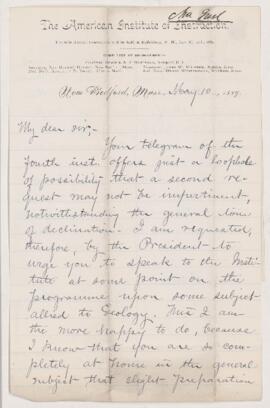 The American Institute of Instruction.
New Bedford, Mass., May 10, 1889.
My dear sir;-
Your telegram of the
fourth inst. offers just a loophole
of possibility that a second re-
quest may not be impertinent,
notwithstanding the general tone
of declination. I am requested,
therefore, by the President to
urge you to speak to the Insti-
tute at some point on the
programme upon some subject
allied to Geology. This I am
the more happy to do, because
I know that you are so com-
pletely at home in the general
subject that slight preparation